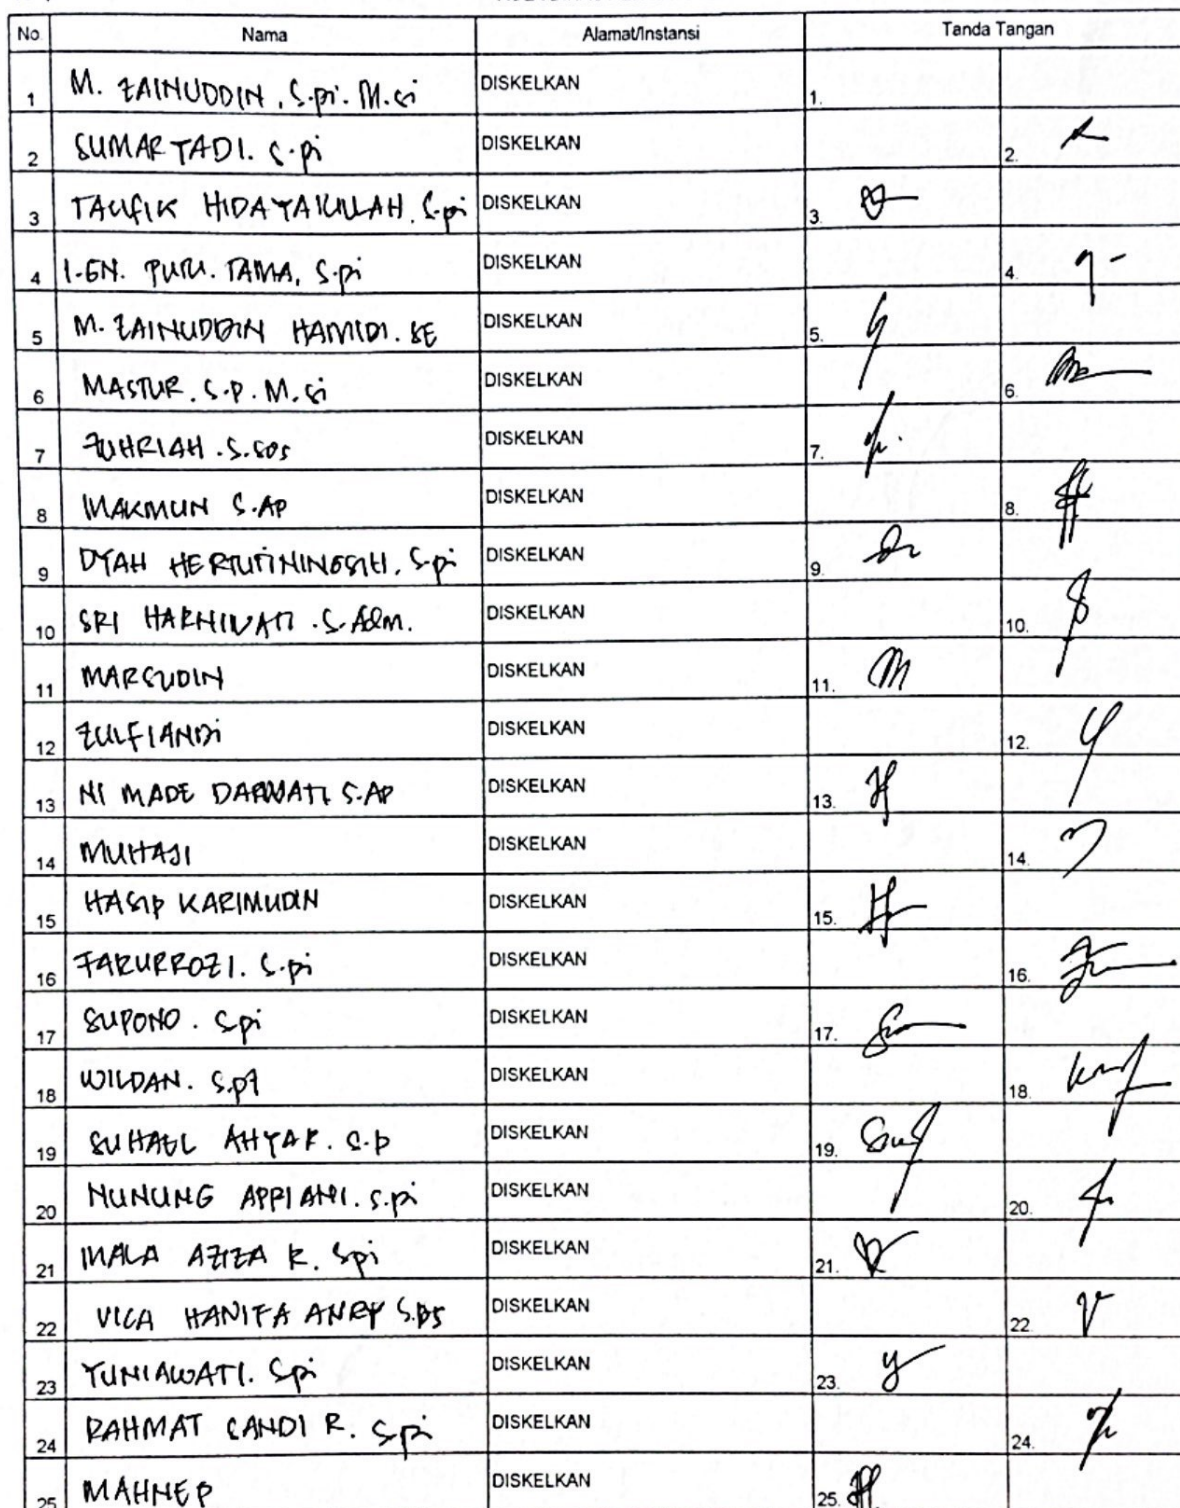 No Nama Alamat/Instansi Tanda Tangan
1 M. ZAINUDDIN, S.pi. M.si DISKELKAN 1.
2 SUMARTADI. S.pi DISKELKAN 2.
3 TAUFIK HIDAYATULLAH. S.pi DISKELKAN 3.
4 I.GN. PUTU. TAMA, S.pi DISKELKAN 4.
5 M. ZAINUDDIN HAMIDI. SE DISKELKAN 5.
6 MASTUR. S.P. M.si DISKELKAN 6.
7 ZUHRIAH. S.sos DISKELKAN 7.
8 MAKMUN S.AP DISKELKAN 8.
9 DYAH S.pi DISKELKAN 9.
10 SRI HARNIWATI. S.Adm. DISKELKAN 10.
11 MARSUDIN DISKELKAN 11.
12 ZULFIANDI DISKELKAN 12.
13 NI MADE DARWATI S.AP DISKELKAN 13.
14 MUHAJI DISKELKAN 14.
15 HASIP KARIMUDIN DISKELKAN 15.
16 FARURROZI. S.pi DISKELKAN 16.
17 SUPONO. S.pi DISKELKAN 17.
18 WILDAN. S.pt DISKELKAN 18.
19 SUHAEL AHYAR. S.P DISKELKAN 19.
20 NUNUNG APPIANI. S.pi DISKELKAN 20.
21 MALA AZIZA R. S.pi DISKELKAN 21.
22 VICA HANIFA DISKELKAN 22.
23 YUNIAWATI. S.pi DISKELKAN 23.
24 RAHMAT CANDI R. S.pi DISKELKAN 24.
25 MAHNEP DISKELKAN 25.